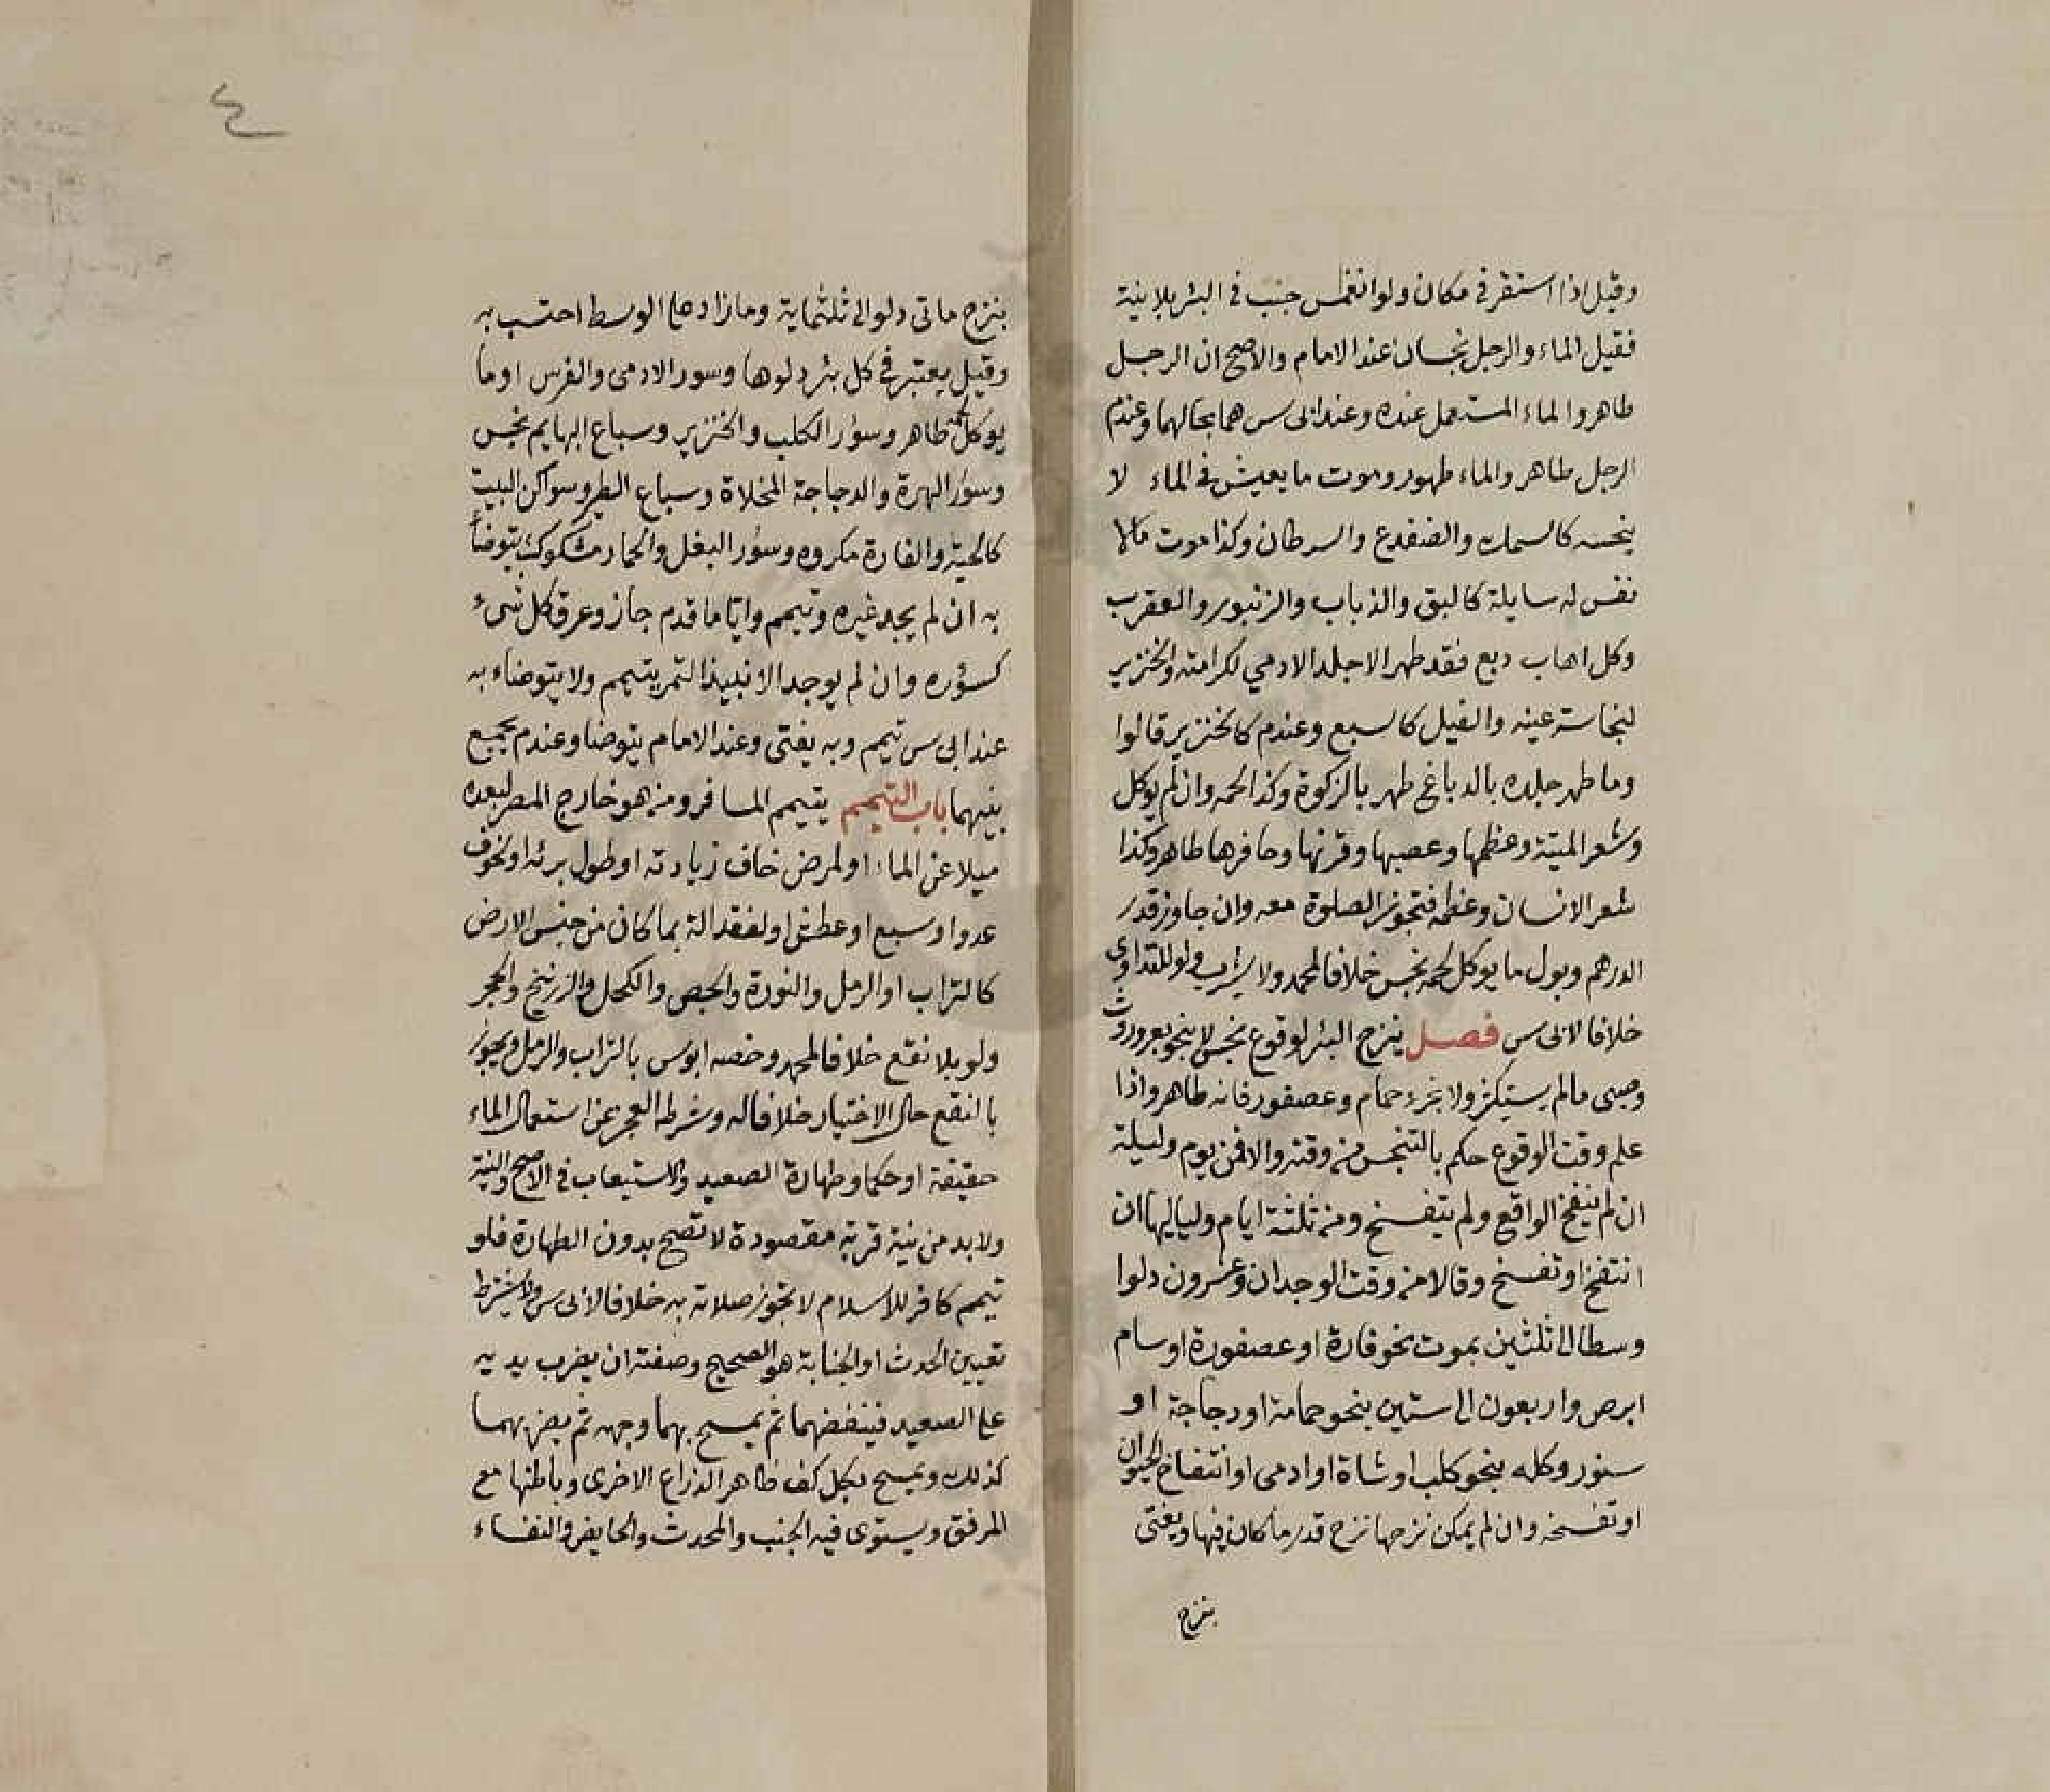 وقيل اذا استقر في مكان ولو انغمس جنب في البئر بلا نية
فقيل الماء والرجل نجسان عند الامام والاصح ان الرجل
طاهر والماء المستعمل عنده وعند ابى س هما بحالهما وعند م
الرجل طاهر والماء طهور وموت ما يعيش في الماء لا
ينجسه كالسمك والضفدع والسرطان وكذا موت ما لا
نفس له سايلة كالبق والذباب والزنبور والعقرب
وكل اهاب دبع فقد طهر الا جلد الادمي لكرامته والخنزير
لنجاسة عينه والفيل كالسبع وعند م كالخنزير قالوا
وما طهر جلده بالدباغ طهر بالزكوة وكذا لحمه وان لم يوكل
وشعر الميتة وعظمها وعصبها وقرنها وحافرها طاهر وكذا
شعر الانسان وعظمه فتجوز الصلوة معه وان جاوز قدر
الدرهم وبول ما يوكل لحمه نجس خلافا لمحمد ولا يشرب ولو للتداوى
خلافا لابى س فصل ينزح البئر لوقوع نجس لا بنحو بعر وروث
وخثى ما لم يستكثر ولا بخرء حمام وعصفور فانه طاهر واذا
علم وقت الوقوع حكم بالتنجس من وقته والا فمن يوم وليلة
ان لم ينتفخ الواقع ولم يتفسخ ومن ثلثة ايام ولياليها ان
انتفخ او تفسخ وقالا من وقت الوجدان وعشرون دلوا
وسطا الى ثلثين بموت نحو فارة او عصفورة او سام
ابرص واربعون الى ستين بنحو حمامة او دجاجة او
سنور وكله بنحو كلب او شاة او ادمى او انتفاخ الحيوان
او تفسخه وان لم يمكن نزحها نزح قدر ما كان فيها ويفتى
بنزح
٤
بنزح ماتى دلو الى ثلثماية وما زاد على الوسط احتسب به
وقيل يعتبر في كل بئر دلوها وسور الادمى والفرس او ما
يوكل لحمه طاهر وسؤر الكلب والخنزير وسباع البهايم نجس
وسؤر الهرة والدجاجة المخلاة وسباع الطير وسواكن البيت
كالحية والفارة مكروه وسؤر البغل والحمار مشكوك يتوضأ
به ان لم يجد غيره وتيمم وايا ما قدم جاز وعرق كل شىء
كسؤره وان لم يوجد الا نبيذ التمر يتيمم ولا يتوضاء به
عند ابى س تيمم وبه يفتى وعند الامام يتوضا وعند م يجمع
بينهما باب التيمم يتيمم المسافر ومن هو خارج المصر لبعده
ميلا عن الماء او لمرض خاف زيادته او طول برئه او لخوف
عدو او سبع او عطش او لفقد الة بما كان من جنس الارض
كالتراب او الرمل والنورة والجص والكحل والزرنيخ والحجر
ولو بلا نقع خلافا لمحمد وخصه ابو س بالتراب والرمل ويجوز
بالنقع حال الاختيار خلافا له وشرطه العجز عن استعمال الماء
حقيقة او حكما وطهارة الصعيد والاستيعاب في الاصح والنية
ولا بد من نية قربة مقصودة لا تصح بدون الطهارة فلو
تيمم كافر للاسلام لا تجوز صلاته به خلافا لابى س ولا يشترط
تعيين الحدث او الجنابة هو الصحيح وصفته ان يضرب يديه
على الصعيد فينفضهما ثم يمسح بهما وجهه ثم يضربهما
كذلك ويمسح بكل كف ظاهر الذراع الاخرى وباطنها مع
المرفق ويستوى فيه الجنب والمحدث والحايض والنفساء